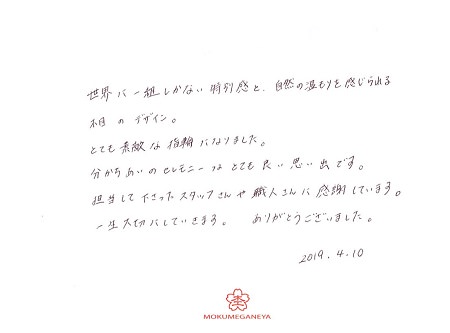 世界に一組しかない特別感と、自然の温もりを感じられる
木目のデザイン。
とても素敵な指輪になりました。
分かちあいのセレモニーはとても良い思い出です。
担当して下さったスタッフさんや職人さんに感謝しています。
一生大切にしていきます。 ありがとうございました。
2019.4.10
MOKUMEGANEYA